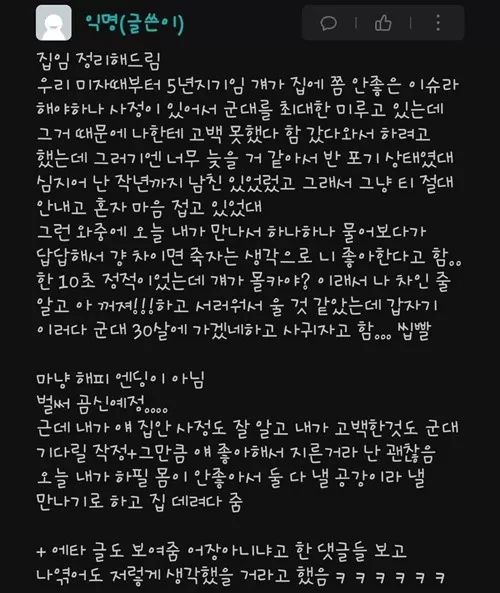 익명(글쓴이)
집임 정리해드림
우리 미자때부터 5년지기임 걔가 집에 쫌 안좋은 이슈라
해야하나 사정이 있어서 군대를 최대한 미루고 있는데
그거 때문에 나한테 고백 못했다 함 갔다와서 하려고
했는데 그러기엔 너무 늦을 거 같아서 반 포기 상태였대
심지어 난 작년까지 남친 있었었고 그래서 그냥 티 절대
안내고 혼자 마음 접고 있었대
그런 와중에 오늘 내가 만나서 하나하나 물어보다가
답답해서 걍 차이면 죽자는 생각으로 니 좋아한다고 함..
한 10초 정적이었는데 걔가 몰카야? 이래서 나 차인 줄
알고 아 꺼져!!!하고 서러워서 울 것 같았는데 갑자기
이러다 군대 30살에 가겠네하고 사귀자고 함,,, 씹빨
마냥 해피 엔딩이 아님
벌써 곰신예정....
근데 내가 얘 집안 사정도 잘 알고 내가 고백한것도 군대
기다릴 작정+그만큼 얘 좋아해서 지른거라 난 괜찮음
오늘 내가 하필 몸이 안좋아서 둘 다 낼 공강이라 낼
만나기로 하고 집 데려다 줌
+ 에타 글도 보여줌 어장아니냐고 한 댓글들 보고
나엮어도 저렇게 생각했을 거라고 했음 ㅋㅋㅋㅋㅋㅋ